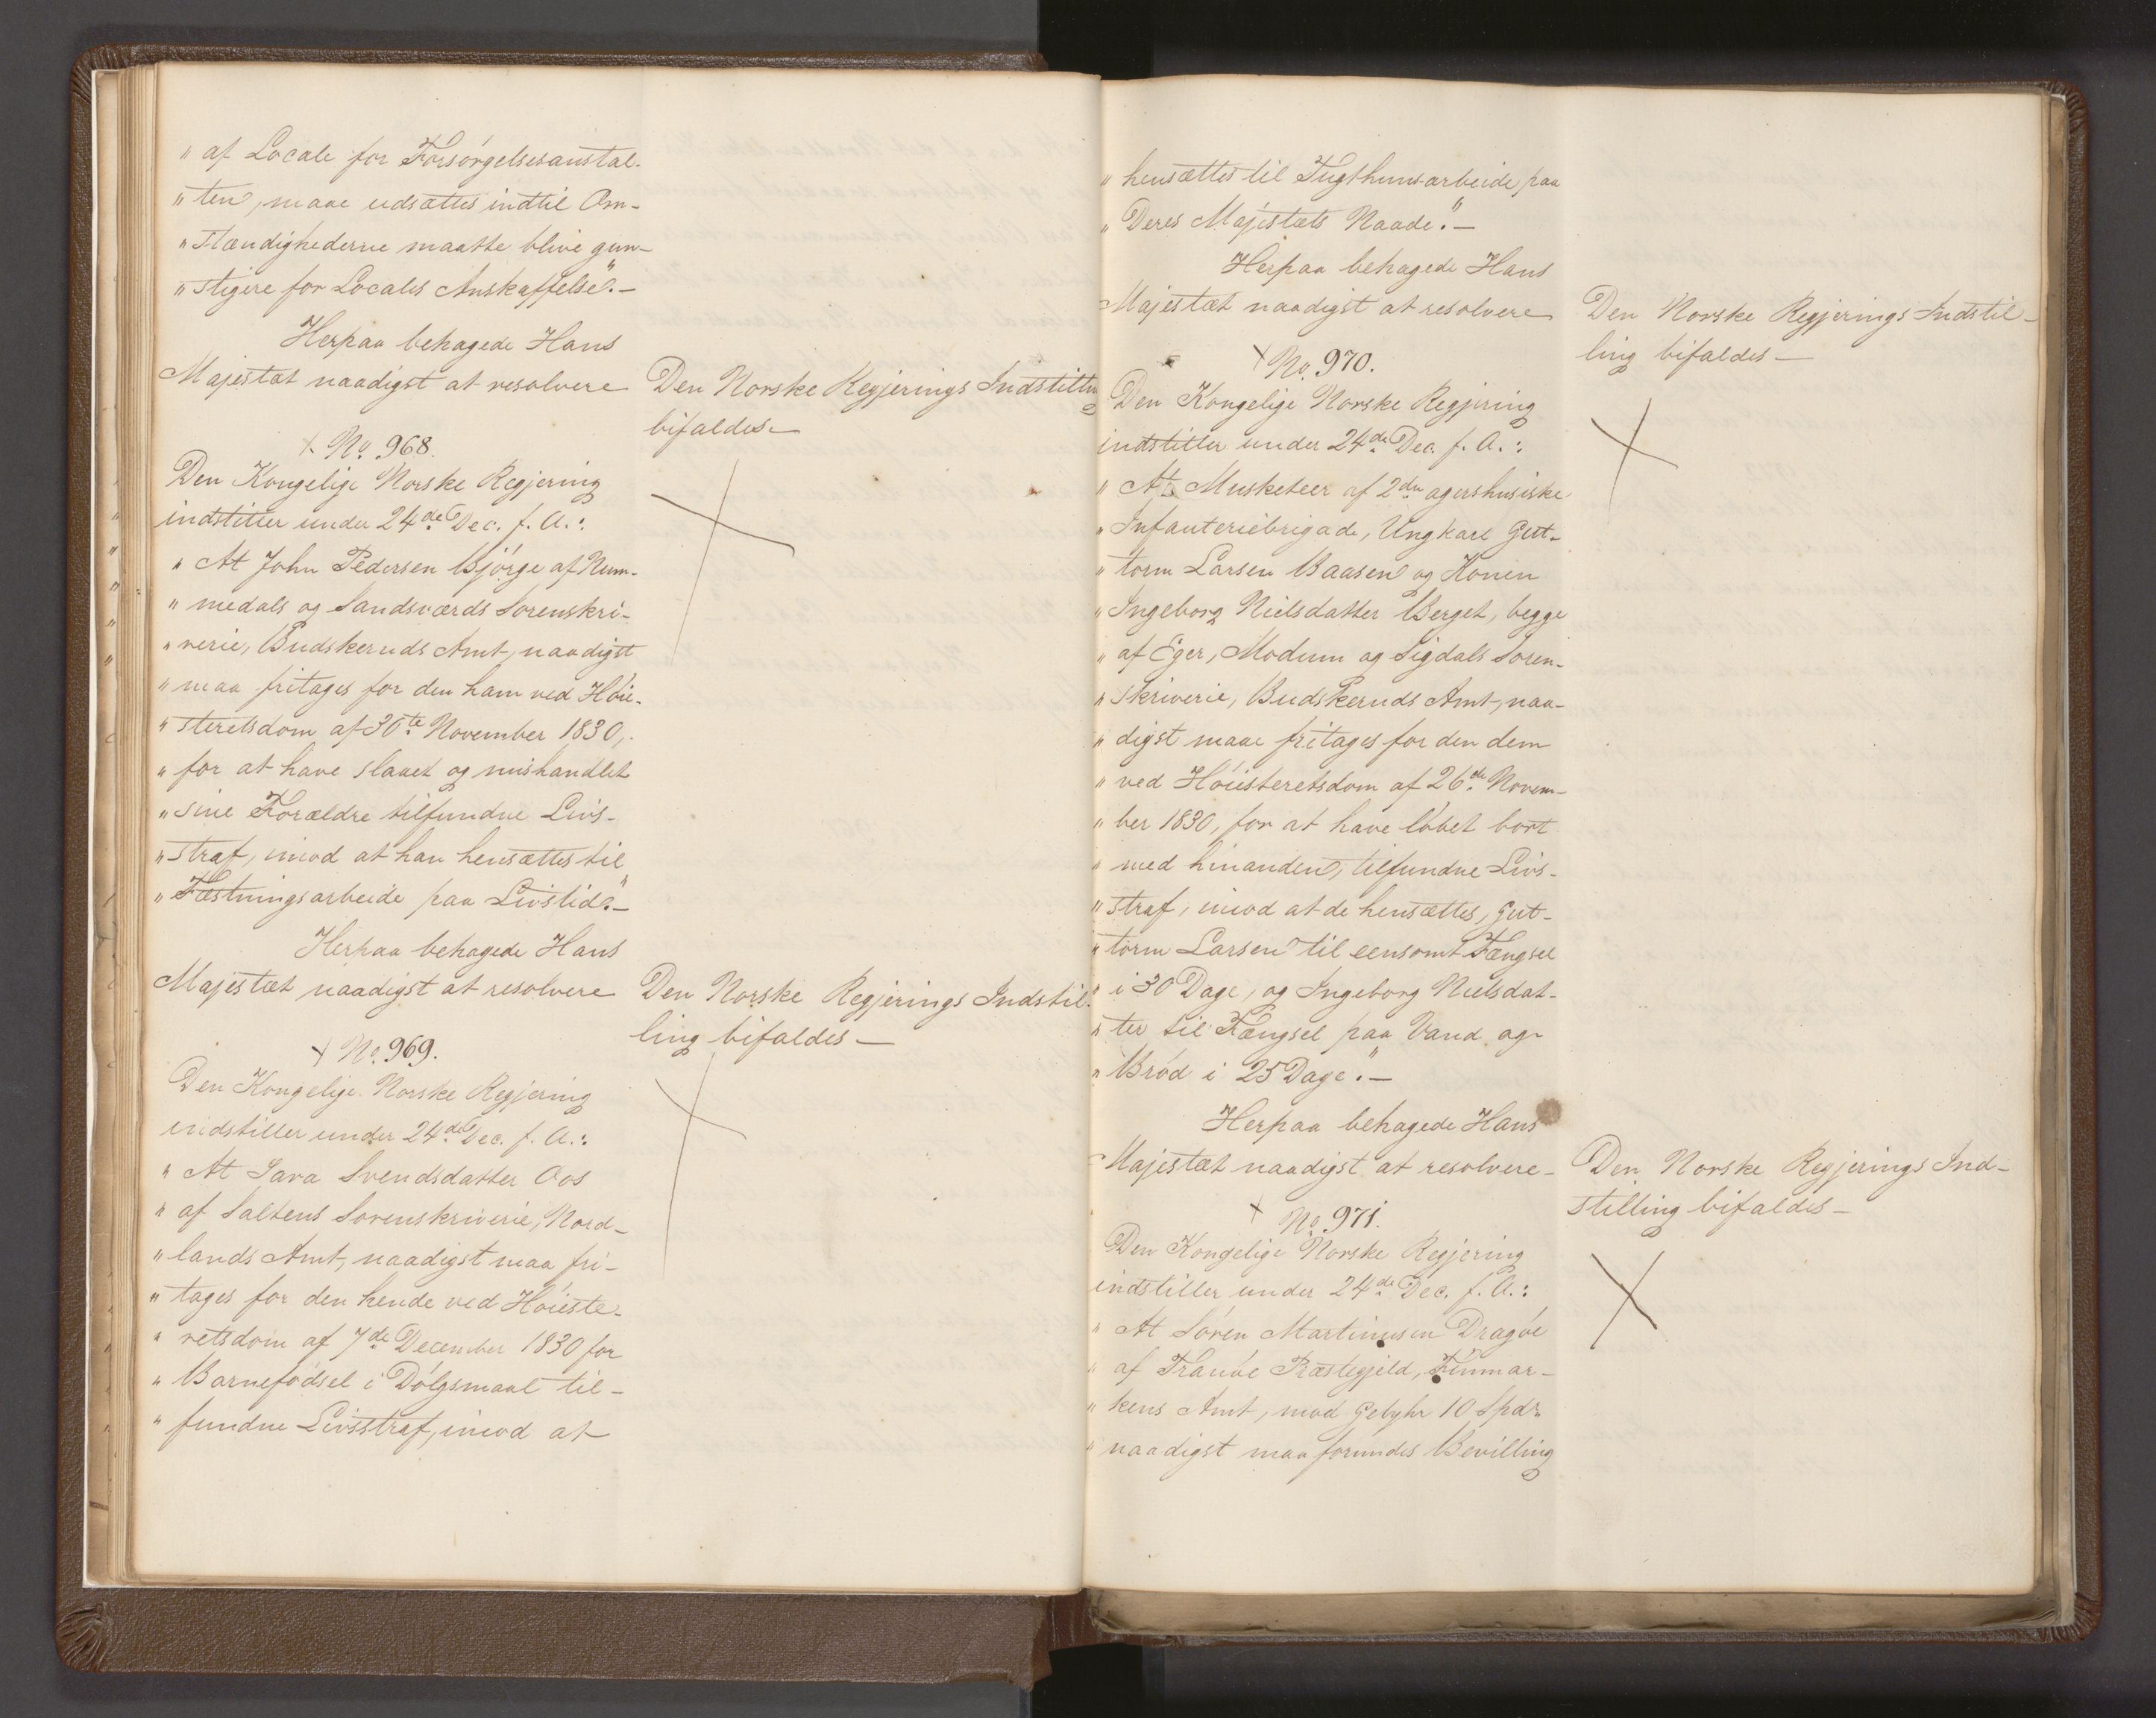 " af Locale for Forsørgelsesanstal-
" ten, maae udsættes indtil Om-
" stændighederne maatte blive gun-
" stigere for Locales Anskaffelse". —
Herpaa behagede Hans
Majestæt naadigst at resolvere
Den Norske Regjerings Indstilling
bifaldes —
No. 968.
Den Kongelige Norske Regjering
indstiller under 24de Dec. f. A.:
" At John Pedersen Bjørge af Num-
" medals og Sandsværds Sorenskri-
" verie, Budskeruds Amt, naadigst
" maa fritages for den ham ved Høie-
" steretsdom af 30te November 1830,
" for at have slaaet og mishandlet
" sine Forældre tilfundne Livs-
" straf, imod at han hensættes til
" Fæstningsarbeide paa Livstid". —
Herpaa behagede Hans
Majestæt naadigst at resolvere
Den Norske Regjerings Indstil-
ling bifaldes —
No. 969.
Den Kongelige Norske Regjering
indstiller under 24de Dec. f. A.:
" At Sara Svendsdatter Oos
" af Saltens Sorenskriverie, Nord-
" lands Amt, naadigst maa fri-
" tages for den hende ved Høieste-
" retsdom af 7de December 1830 for
" Barnefødsel i Dølgsmaal til-
" fundne Livsstraf, imod at
" hensættes til Tugthuusarbeide paa
" Deres Majestæts Naade". —
Herpaa behagede Hans
Majestæt naadigst at resolvere
Den Norske Regjerings Indstil-
ling bifaldes —
No. 970.
Den Kongelige Norske Regjering
indstiller under 24de Dec. f. A.:
" At Musketeer af 2den agershusiske
" Infanteriebrigade, Ungkarl Gut-
" torm Larsen Baasen og Konen
" Ingeborg Nielsdatter Berget, begge
" af Eger, Modum og Sigdals Soren-
" skriverie, Budskeruds Amt, naa-
" digst maae fritages for den dem
" ved Høiesteretsdom af 26de Novem-
" ber 1830, for at have løbet bort
" med hinanden, tilfundne Livs-
" straf, imod at de hensættes, Gut-
" torm Larsen til eensomt Fængsel
" i 30 Dage, og Ingeborg Nielsdat-
" ter til Fængsel paa Vand og
" Brød i 25 Dage". —
Herpaa behagede Hans
Majestæt naadigst at resolvere —
Den Norske Regjerings Ind-
stilling bifaldes —
No. 971.
Den Kongelige Norske Regjering
indstiller under 24de Dec. f. A.:
" At Søren Martinusen Dragøe
" af Tranøe Præstegjeld, Finmar-
" kens Amt, mod Gebyhr 10 Spdr.
" naadigst maa forundes Bevilling